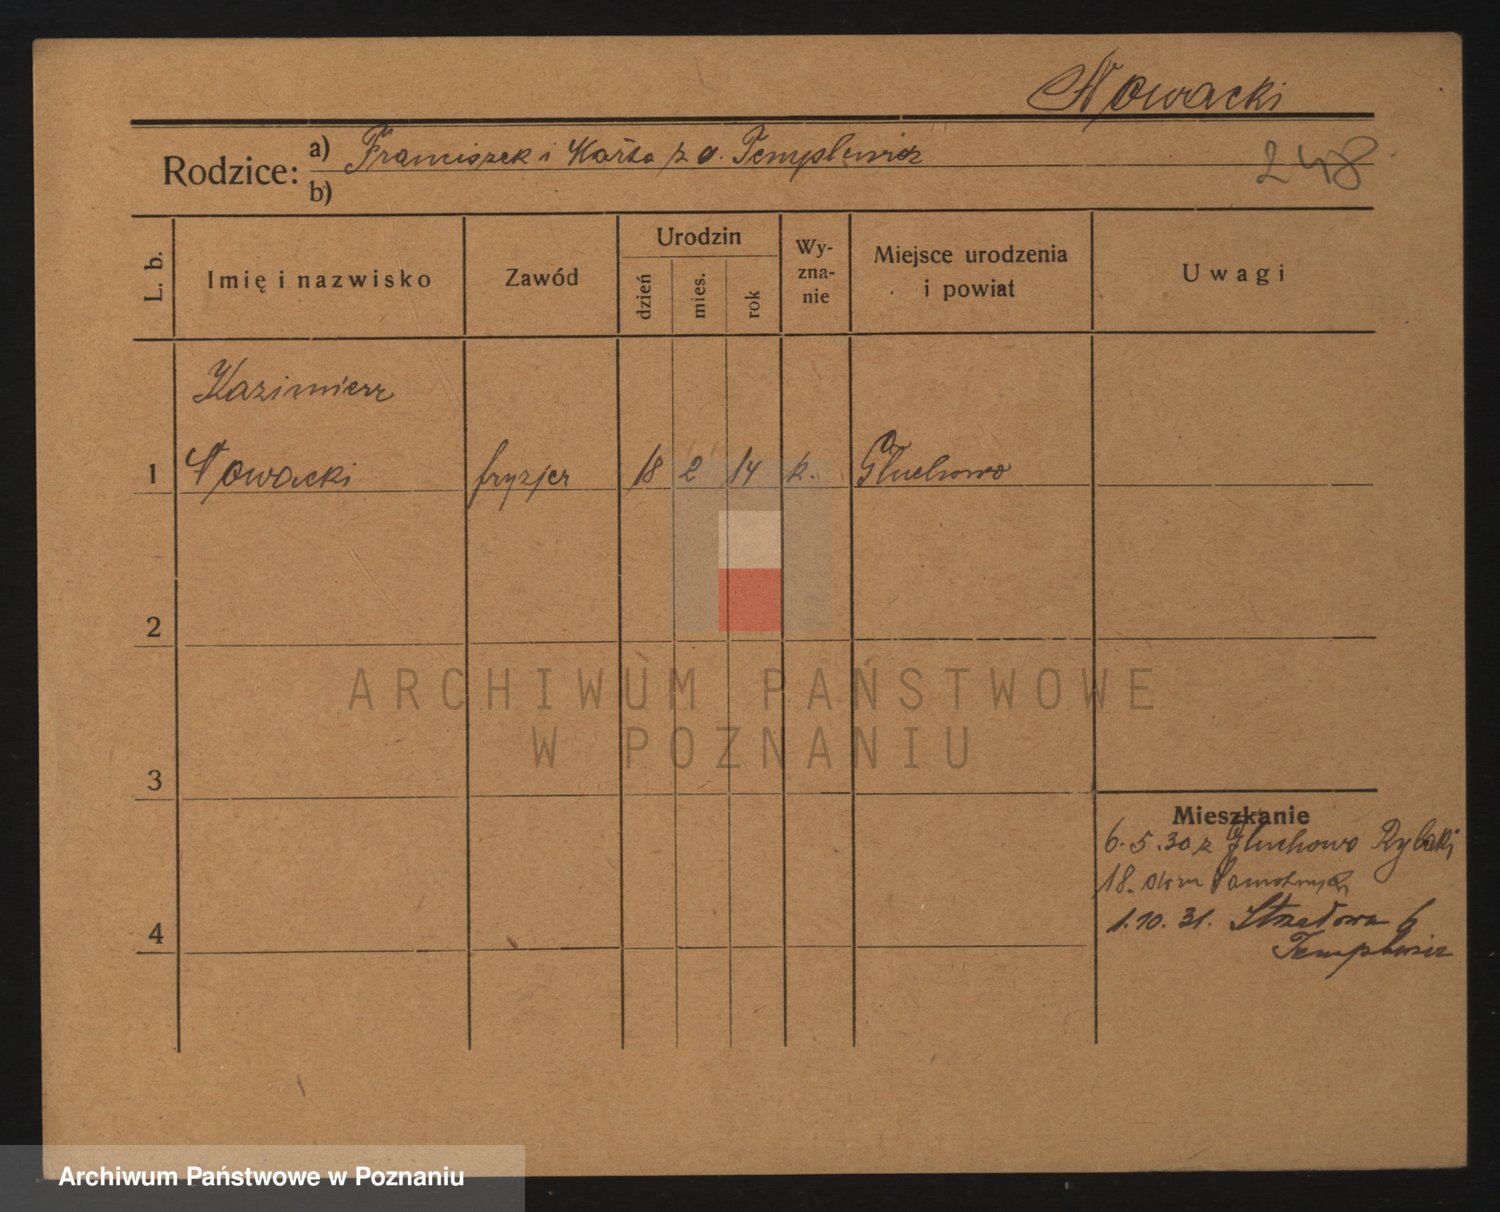 Nowacki
Rodzice: a) Franciszek i z d. Templewicz
b)
248
L. b.
Imię i nazwisko
Zawód
Urodzin
dzień
mies.
rok
Wy-
zna-
nie
Miejsce urodzenia
i powiat
Uwagi
Kazimierz
1 Nowacki fryzjer 18 2 14 k. Głuchowo
2
3
4
Mieszkanie
6.5.30 z Głuchowo Rybaki
18.
1.10.31. 6
Templewicz
ARCHIWUM PAŃSTWOWE
W POZNANIU
Archiwum Państwowe w Poznaniu